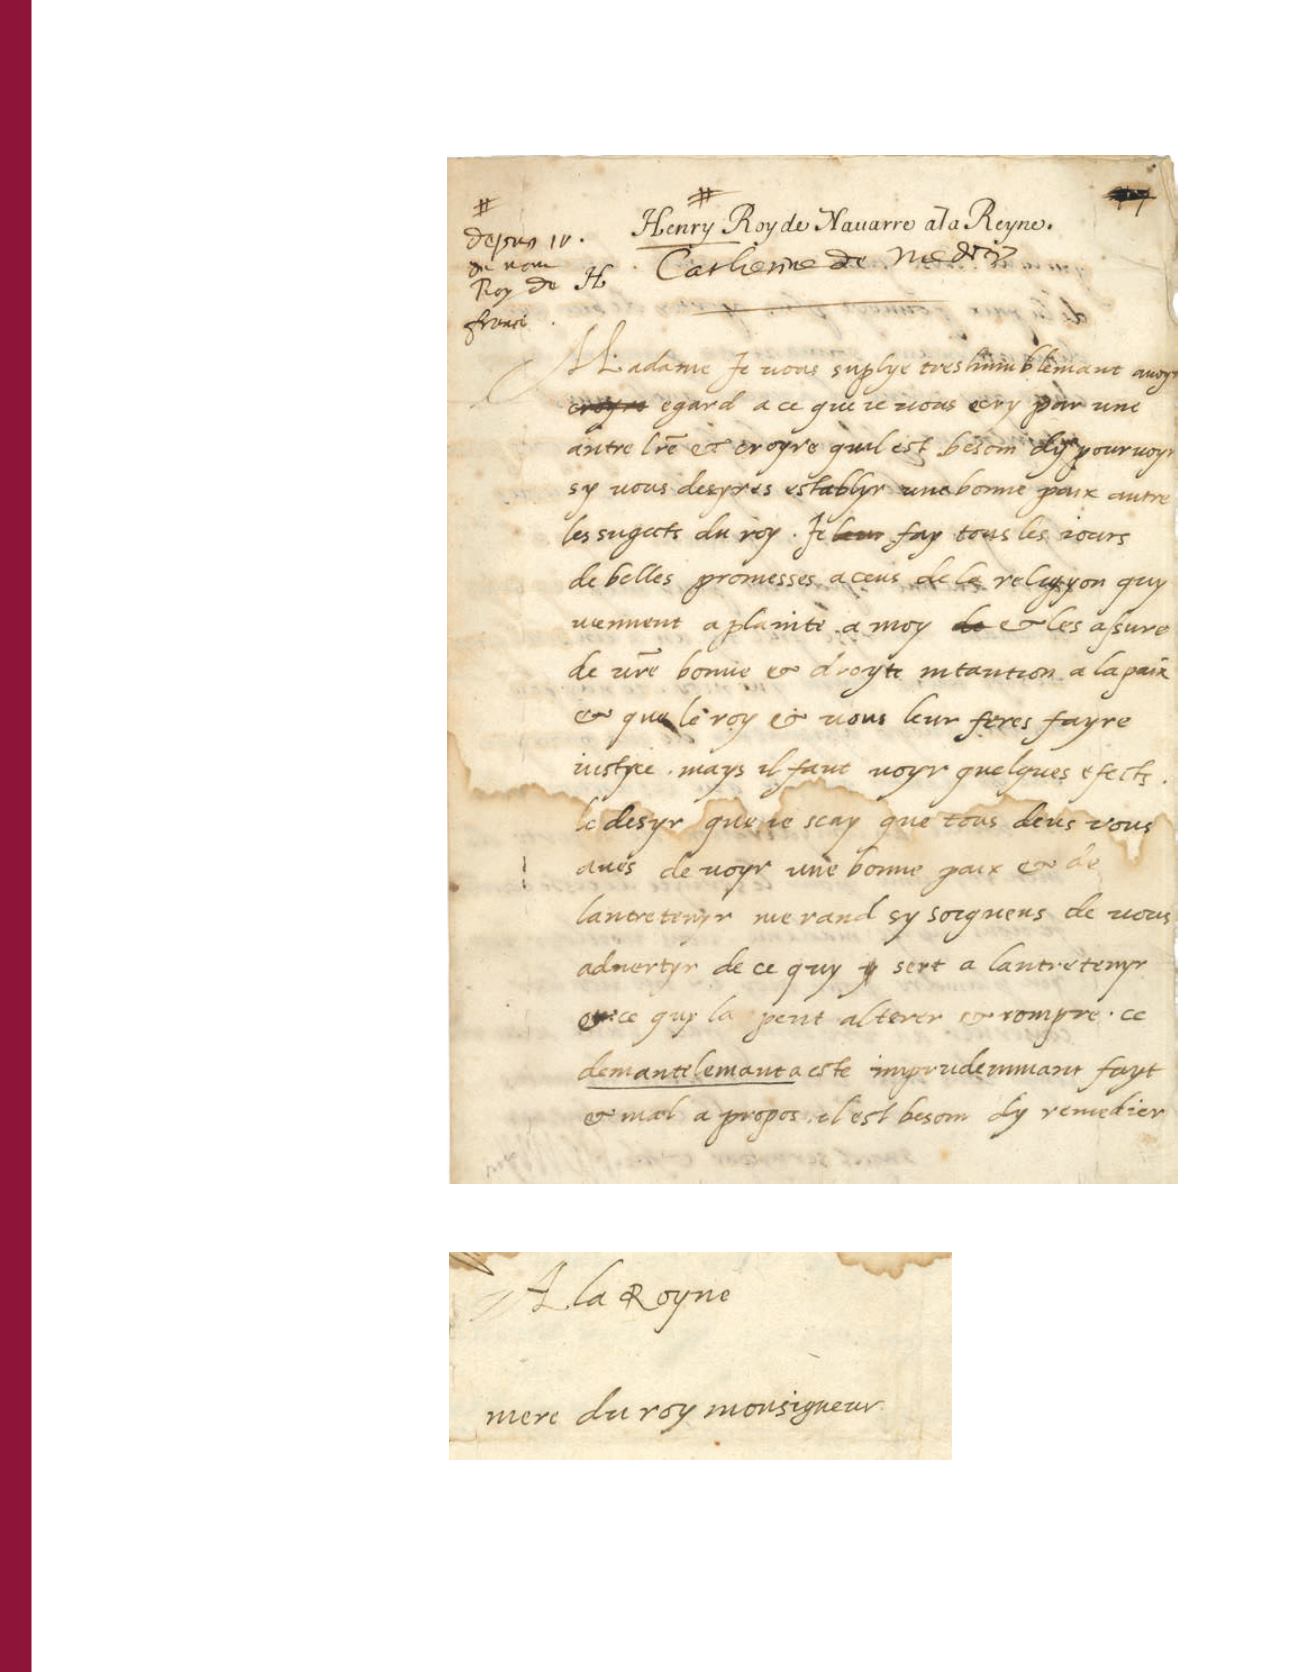 #
#
Henry Roy de Nauarre a la Reyne.
depuis IV.
du nom
Catherine de Medicis
Roy de H
france.
Madame Je vous suplye treshumblemant auoyr
croyre egard a ce que ie vous ecry par une
autre lr̃e & croyre quil est besoin dy pouruoyr
sy vous desyres establyr une bonne paix antre
les sugects du roy. Je leur fay tous les iours
de belles promesses a ceus de la religyon quy
viennent a plainte a moy de & les asure
de vr̃e bonne & droyte intantion a la paix
& que le roy & vous leur feres fayre
iustyce. mays il faut voyr quelques efects.
le desyr que ie scay que tous deus vous
aues de voyr une bonne paix & de
lantretenyr me rand sy soigneus de vous
aduertyr de ce quy sert a lantretenyr
& ce quy la peut alterer & rompre. ce
demantelemant a este imprudemmant fayt
& mal a propos. il est besoin dy remedier
A la Royne
mere du roy monsigneur